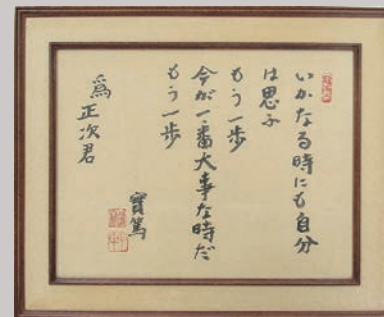 いかなる時にも自分
は思ふ
もう一歩
今が一番大事な時だ
もう一歩
實篤
為正次君